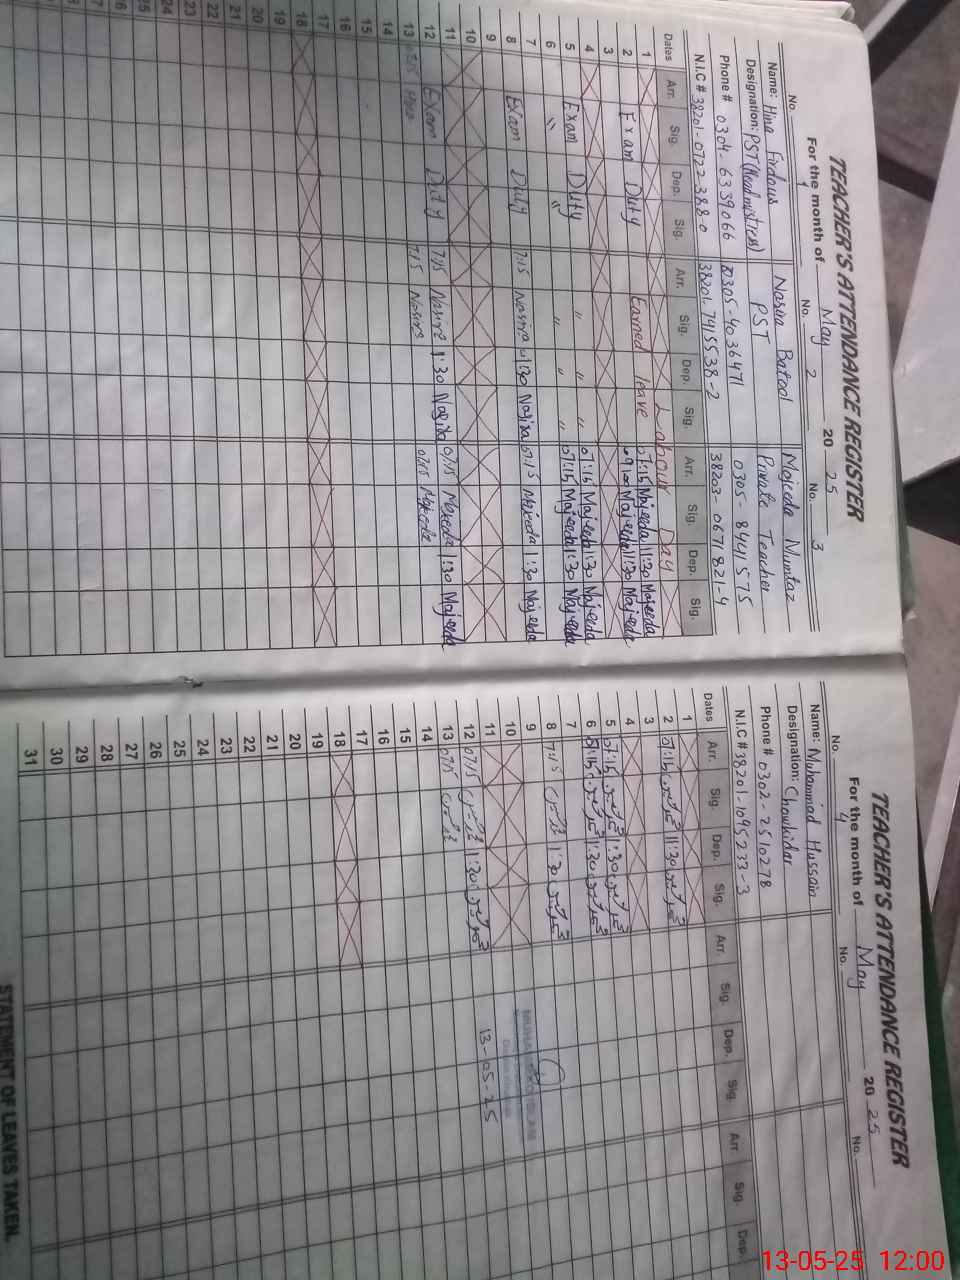 TEACHER'S ATTENDANCE REGISTER
For the month of May 2025
No. 1 No. 2 No. 3
Name: Hina Firdous Nasira Batool Majeeda Mumtaz
Designation: PST (Headmistress) PST Private Teacher
Phone # 0304-6339066 0305-4036471 0305-8441575
N.I.C # 38201-0722388-0 38201-7415538-2 38203-0671821-4
Dates Arr. Sig. Dep. Sig. Arr. Sig. Dep. Sig. Arr. Sig. Dep. Sig.
1 Labour Day
2 Exam Duty Earned leave 07:15 Majeeda 11:30 Majeeda
3
4
5 Exam Duty " " " 07:15 Majeeda 11:30 Majeeda
6 " " " " " 07:15 Majeeda 11:30 Majeeda
7
8 Exam Duty 7:15 Nasira 11:30 Nasira 07:15 Majeeda 11:30 Majeeda
9
10
11
12 Exam Duty 7:15 Nasira 11:30 Nasira 07:15 Majeeda 11:30 Majeeda
13 07:15 Hina 7:15 Nasira 07:15 Majeeda
14
15
16
17
18
19
20
21
22
23
24
25
26
TEACHER'S ATTENDANCE REGISTER
For the month of May 2025
No. 4 No. No.
Name: Muhammad Hussain
Designation: Chowkidar
Phone # 0302-2510278
N.I.C # 38201-1095233-3
Dates Arr. Sig. Dep. Sig. Arr. Sig. Dep. Sig. Arr Sig. Dep.
1
2 07:15 11:30
3
4
5 07:15 11:30
6 07:15 11:30
7
8 7:15 11:30
9
10
11
12 07:15 11:30
13 07:15
13-05-25
14
15
16
17
18
19
20
21
22
23
24
25
26
27
28
29
30
31
STATEMENT OF LEAVES TAKEN.
13-05-25 12:00